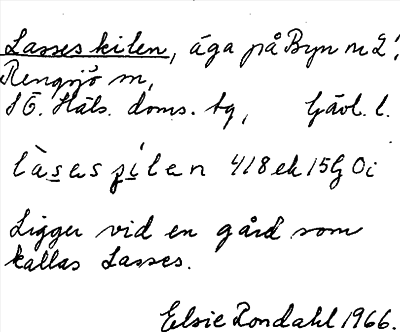 Lasseskilen, äga på Byn nr 2,
Rengsjö sn,
SÖ. Häls. doms. tg, Gävl. l.
làsesɟilen 418 ek 15G 0i
Ligger vid en gård som
kallas Lasses.
Elsie Rondahl 1966.